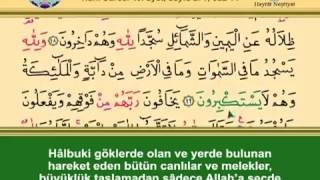 Hayrât Neşriyat
ظِلَالُهُ عَنِ الْيَمِينِ وَالشَّمَٓائِلِ سُجَّدًا لِلّٰهِ وَهُمْ دَاخِرُونَ ﴿٤٨﴾ وَلِلّٰهِ
يَسْجُدُ مَا فِي السَّمٰوَاتِ وَمَا فِي الْاَرْضِ مِنْ دَٓابَّةٍ وَالْمَلٰٓئِكَةُ
وَهُمْ لَا يَسْتَكْبِرُونَ ﴿٤٩﴾ يَخَافُونَ رَبَّهُمْ مِنْ فَوْقِهِمْ وَيَفْعَلُونَ
Hâlbuki göklerde olan ve yerde bulunan
hareket eden bütün canlılar ve melekler,
büyüklük taslamadan sâdece Allah'a secde